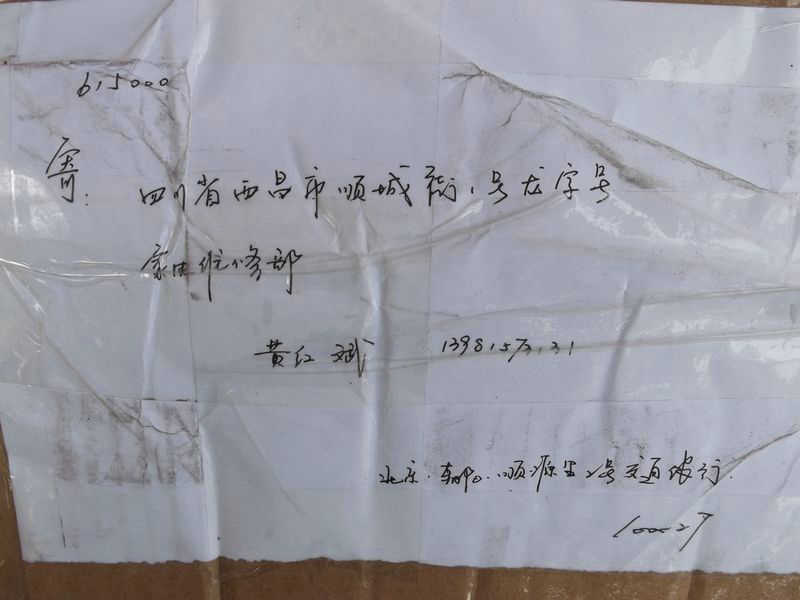 615000
寄: 四川省西昌市顺城街1号龙字号
家电维修部
黄红斌 139815
北京. 顺源里2号交通银行.
100027